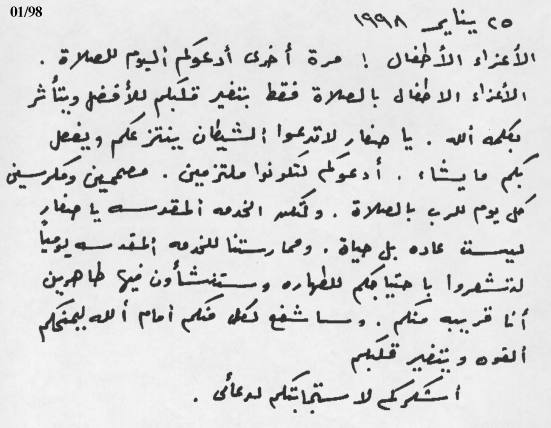 01/98
٢٥ يناير ١٩٩٨
الأعزاء الأطفال ! مرة أخرى أدعوكم اليوم للصلاة .
الأعزاء الاطفال بالصلاة فقط يتغير قلبكم للأفضل ويتأثر
بكلمه الله . يا صغار لا تدعوا الشيطان ينتزعكم ويفعل
بكم ما يشاء . أدعوكم لتكونوا ملتزمين . مصممين ومكرسين
كل يوم للرب بالصلاة . ولتكن الخدمه المقدسه يا صغار
ليست عاده بل حياة . وممارستنا للخدمه المقدسه يومياً
لتشعروا باحتياجكم للطهاره وستنشأون فيها طاهرين
أنا قريبه منكم . وسأشفع لكل منكم أمام الله ليمنحكم
القوه ويتغير قلبكم
أشكركم لاستجابتكم لدعائى .